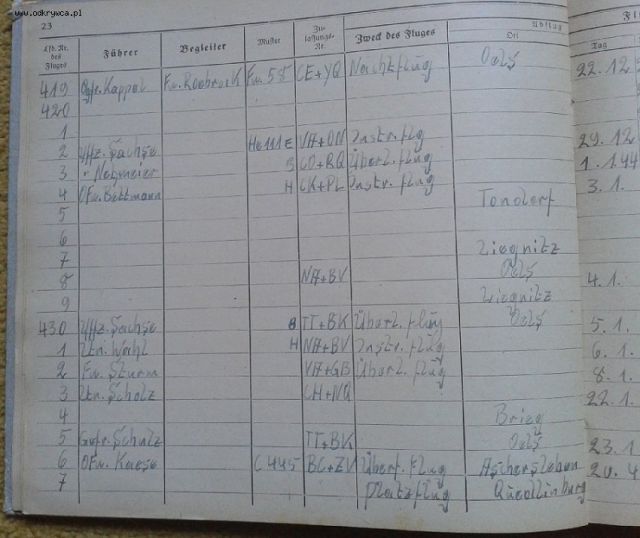 www.odkrywca.pl
23
Abflug
Fl
Lfd. Nr. des Fluges Führer Begleiter Muster Zu- lassungs- Nr. Zweck des Fluges Ort Tag
419 Ogfr. Kappel Fw. Roobrock Fw 58 CE+YQ Nachtflug Oels 22.12
420
1
2 Uffz. Sachse He 111 E VA+ON Instr. flg 29.12
3 " Nehmeier B CO+RQ Überl. flug 1.1.44
4 OFw. Bittmann H CK+PL Instr. flug 3.1.
5 Tondorf
6
7 Liegnitz
8 NA+BV Oels 4.1.
9 Liegnitz
430 Uffz. Sachse B TT+BK Überl. flug Oels 5.1.
1 Ltn. Wahl H NA+BV Instr. flug 6.1.
2 Fw. Sturm VA+GB Überl. flug 8.1.
3 Ltn. Scholz CH+NQ 22.1.
4 Brieg
5 Gefr. Schulz TT+BK Oels 23.1
6 OFw. Kaese C 445 BC+ZV Überf. flug Aschersleben 20.4
7 Platzflug Quedlinburg